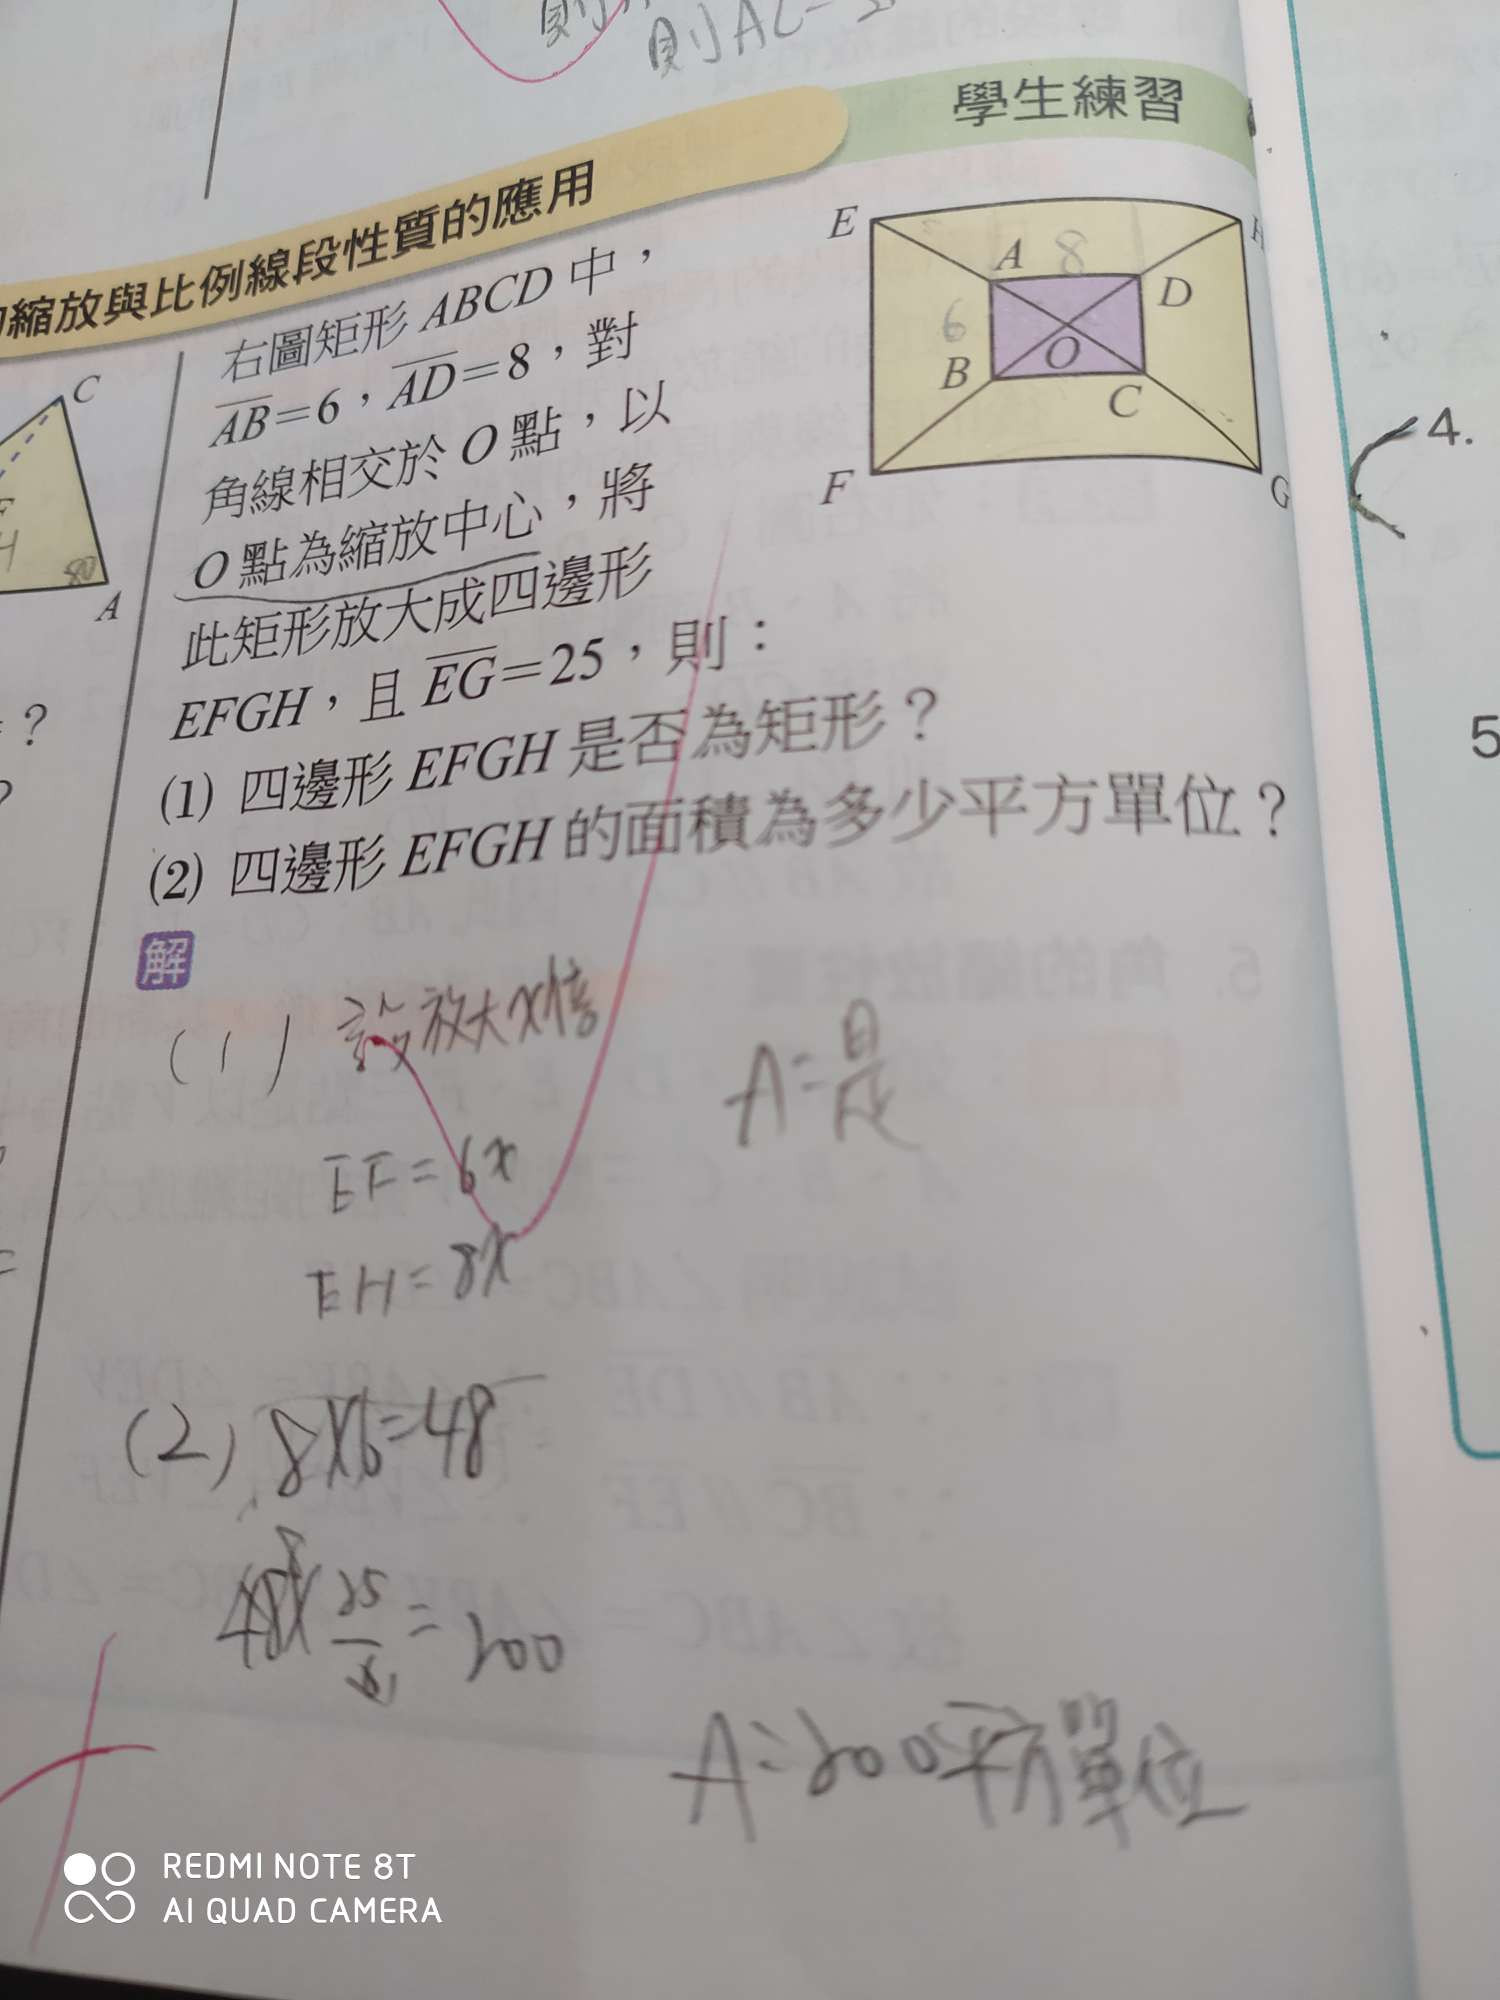 則AC=2
學生練習
縮放與比例線段性質的應用
右圖矩形 ABCD 中，
AB=6，AD=8，對
角線相交於 O 點，以
O 點為縮放中心，將
此矩形放大成四邊形
EFGH，且 EG=25，則：
(1) 四邊形 EFGH 是否為矩形？
(2) 四邊形 EFGH 的面積為多少平方單位？
E
H
A
8
D
6
B
O
C
F
G
C
H
80
A
?
4.
5
解
(1) 設放大x倍
A=是
EF=6x
EH=8x
(2) 8×6=48
48×25/6=200
A=200平方單位
REDMI NOTE 8T
AI QUAD CAMERA